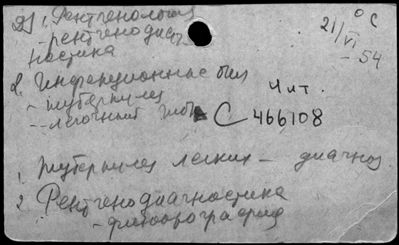 1. Рентгенология
- рентгенодиаг-
ностика
2. Инфекционные бол
- туберкулез
- легочный
°C
21/VI - 54
Чит.
C 466108
1. Туберкулез легких - диагноз
2. Рентгенодиагностика
- флюорография